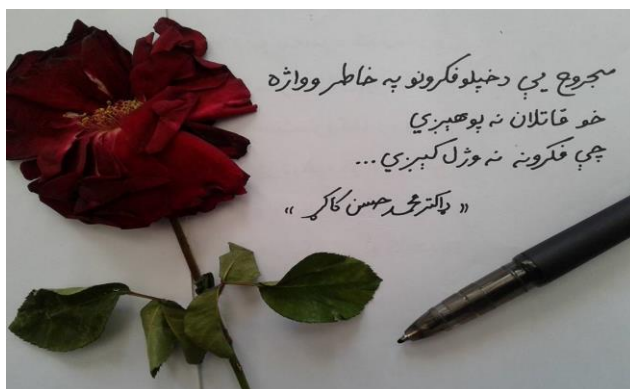 مجروح يې دخپلو فکرونو په خاطر وواژه
خو قاتلان نه پوهېږي
چې فکرونه نه وژل کېږي...
«ډاکتر محمد حسن کاکړ»